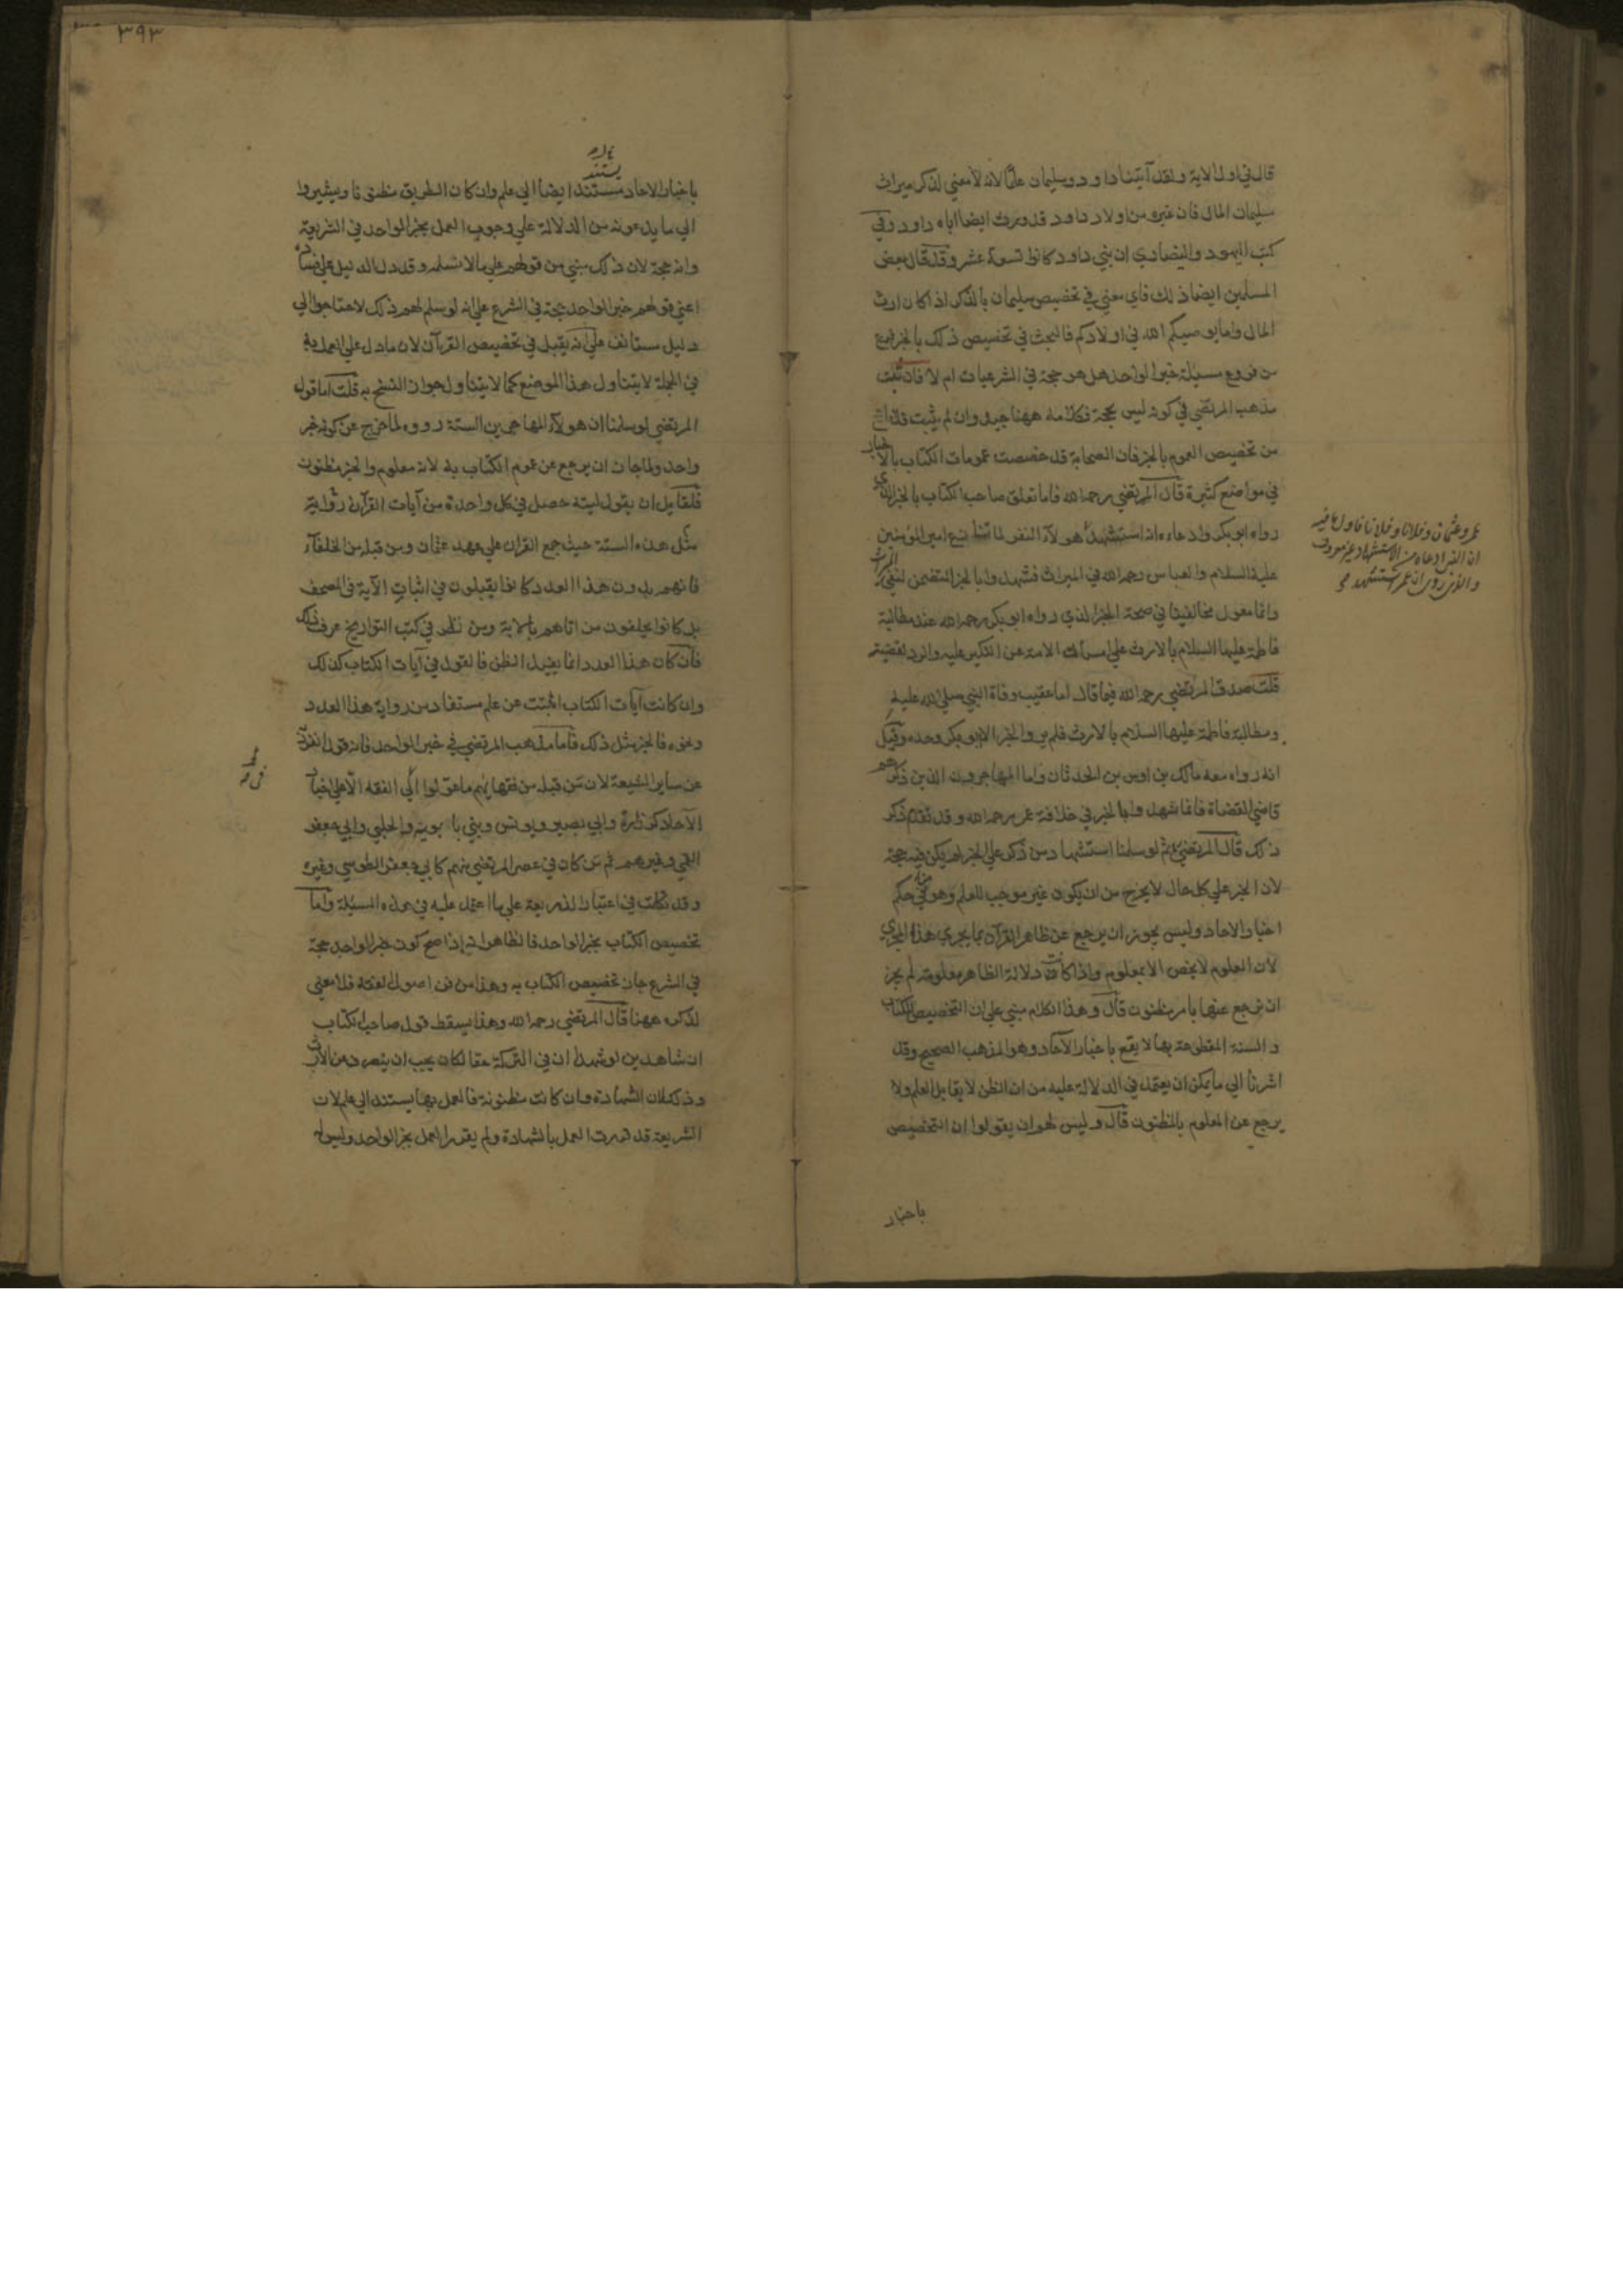 قال في اول الاية ولقد آتينا داود وسليمان علما لانه لا معني لذكر ميراث
سليمان المال فان غيره من اولاد داود قد ورث ايضا اباه داود وفي
كتب اليهود والنصاري ان بني داود كانوا تسعة عشر وقد قال بعض
المسلمين ايضا ذلك فاي معني في تخصيص سليمان بالذكر اذا كان ارث
المال واما يوصيكم الله في اولادكم فالبحث في تخصيص ذلك بالخبر فرع
من فروع مسئلة خبر الواحد هل هو حجة في الشرعيات ام لا فان ثبت
مذهب المرتضي في كونه ليس بحجة فكلامه ههنا جيد وان لم يثبت فلا مانع
من تخصيص العموم بالخبر فان الصحابة قد خصصت عمومات الكتاب بالاخبار
في مواضع كثيرة قال المرتضي رحمه الله فاما تعلق صاحب الكتاب بالخبر الذي
رواه ابو بكر وادعاءه انه استشهد هؤلاء النفر لما تنازع امير المؤمنين
عمر وعثمان وفلانا وفلانا فاول ما فيه
ان الذي ادعاه من الاستشهاد غير معروف
والذي روي ان عمر استشهد
عليه السلام والعباس رحمه الله في الميراث فشهدوا بالخبر المتضمن لنفي الميراث
وانما معول مخالفينا في صحة الخبر الذي رواه ابو بكر رحمه الله عند مطالبة
فاطمة عليها السلام بالارث علي امساك الامة عن النكير عليه والرد لقضيته
قلت صدق المرتضي رحمه الله فيما قال اما عقيب وفاة النبي صلي الله عليه
ومطالبة فاطمة عليها السلام بالارث فلم يرو الخبر الا ابو بكر وحده وقيل
انه رواه معه مالك بن اوس بن الحدثان واما المهاجرون الذين ذكرهم
قاضي القضاة فانما شهدوا بالخبر في خلافة عمر رحمه الله وقد تقدم ذكر
ذلك قال المرتضي ثم لو سلمنا استشهاد من ذكر علي الخبر لم يكن فيه حجة
لان الخبر علي كل حال لا يخرج من ان يكون غير موجب للعلم وهو في حكم
اخبار الاحاد وليس يجوز ان يرجع عن ظاهر القرآن بما يجري هذا المجري
لان المعلوم لا يخص الا بمعلوم واذا كانت دلالة الظاهر معلومة لم يجز
ان يرجع عنها بامر مظنون قال وهذا الكلام مبني علي ان التخصيص للكتاب
والسنة المقطوعة بها لا يقع باخبار الآحاد وهو المذهب الصحيح وقد
اشرنا الي ما يمكن ان يعتمد في الدلالة عليه من ان الظن لا يقابل العلم ولا
يرجع عن المعلوم بالمظنون قال وليس لهم ان يقولوا ان التخصيص
باخبار
٣٩٣
يستند
باخبار الاحاد مستند ايضا الي علم وان كان الطريق مظنونا ويشيروا
الي ما يدعونه من الدلالة علي وجوب العمل بخبر الواحد في الشريعة
وانه حجة لان ذلك مبني من قولهم علي ما لا نسلمه وقد دل الدليل علي فساده
اعني قولهم خبر الواحد حجة في الشرع علي انه لو سلم لهم ذلك لاحتاجوا الي
دليل مستانف علي انه يقبل في تخصيص القرآن لان ما دل علي العمل به
في الجملة لا يتناول هذا الموضع كما لا يتناول جواز النسخ به قلت اما قول
المرتضي لو سلمنا ان هؤلاء المهاجرين الستة رووه لما خرج عن كونه خبر
واحد ولما جاز ان يرجع عن عموم الكتاب به لانه معلوم والخبر مظنون
فلقايل ان يقول ليته حصل في كل واحدة من آيات القرآن رواية
مثل هذه الستة حيث جمع القران علي عهد عثمان ومن قبله من الخلفاء
فانهم بدون هذا العدد كانوا يقبلون في اثبات الآية في المصحف
بل كانوا يحلفون من اتاهم بالاية ومن نظر في كتب التواريخ عرف ذلك
فان كان هذا العدد انما يفيد الظن فالقول في آيات الكتاب كذلك
وان كانت آيات الكتاب اثبتت عن علم مستفاد من رواية هذا العدد
ونحوه فالخبر مثل ذلك فاما مذهب المرتضي في خبر الواحد فانه قول انفرد به
عن ساير الشيعة لان من قبله من فقهايهم ما عولوا في الفقه الا علي اخبار
الآحاد كزرارة وابي بصير ويونس وبني بابويه والحلبي وابي جعفر
القمي وغيرهم ثم من كان في عصر المرتضي منهم كابي جعفر الطوسي وغيره
وقد تكلمت في اعتبار الذريعة علي ما اعتمد عليه في هذه المسئلة واما
تخصيص الكتاب بخبر الواحد فالظاهر انه اذا صح كون خبر الواحد حجة
في الشرع جاز تخصيص الكتاب به وهذا من فن اصول الفقه فلا معني
لذكره ههنا قال المرتضي رحمه الله وهذا يسقط قول صاحب الكتاب
ان شاهدين لو شهدا ان في التركة حقا لكان يجب ان ينصرف عن الارث
وذلك لان الشهادة وان كانت مظنونة فالعمل بها يستند الي علم لان
الشريعة قد قررت العمل بالشهادة ولم يقرر العمل بخبر الواحد وليس له